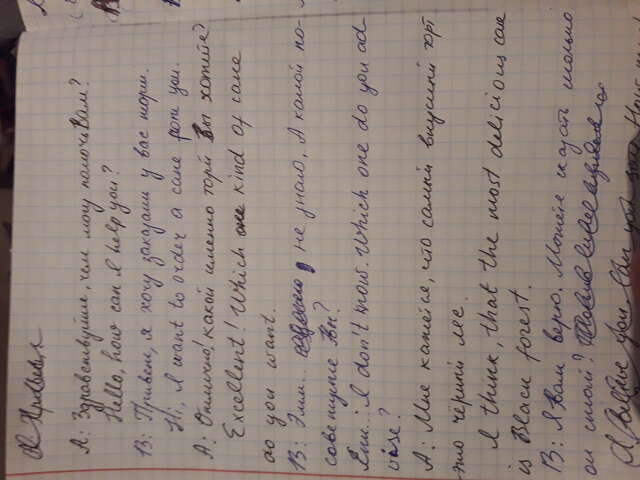 А: Здравствуйте, чем могу помочь Вам?
Hello, how can I help you?
В: Привет, я хочу заказать у вас торт.
Hi, I want to order a cake from you.
А: Отлично! Какой именно торт Вы хотите?
Excellent! Which one kind of cake
do you want.
В: Эмм... не знаю, А какой по-
советуете Вы?
Emm... I don't know. Which one do you ad
vise?
А: Мне кажется, что самый вкусный торт
это чёрный лес.
I think, that the most delicious cake
is Black forest.
В: Я Вам верю. Можете сказать сколько
он стоит?
I believe you Can you